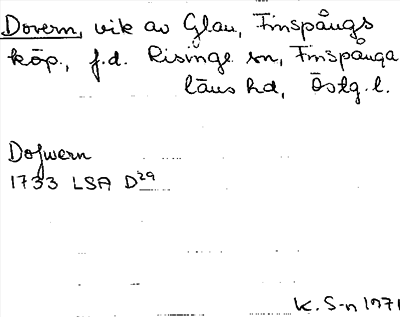 Dovern, vik av Glan, Finspångs
köp., f.d. Risinge sn, Finspånga
läns hd, Östg.l.
Dofwern
1733 LSA D29
K. S-n 1971